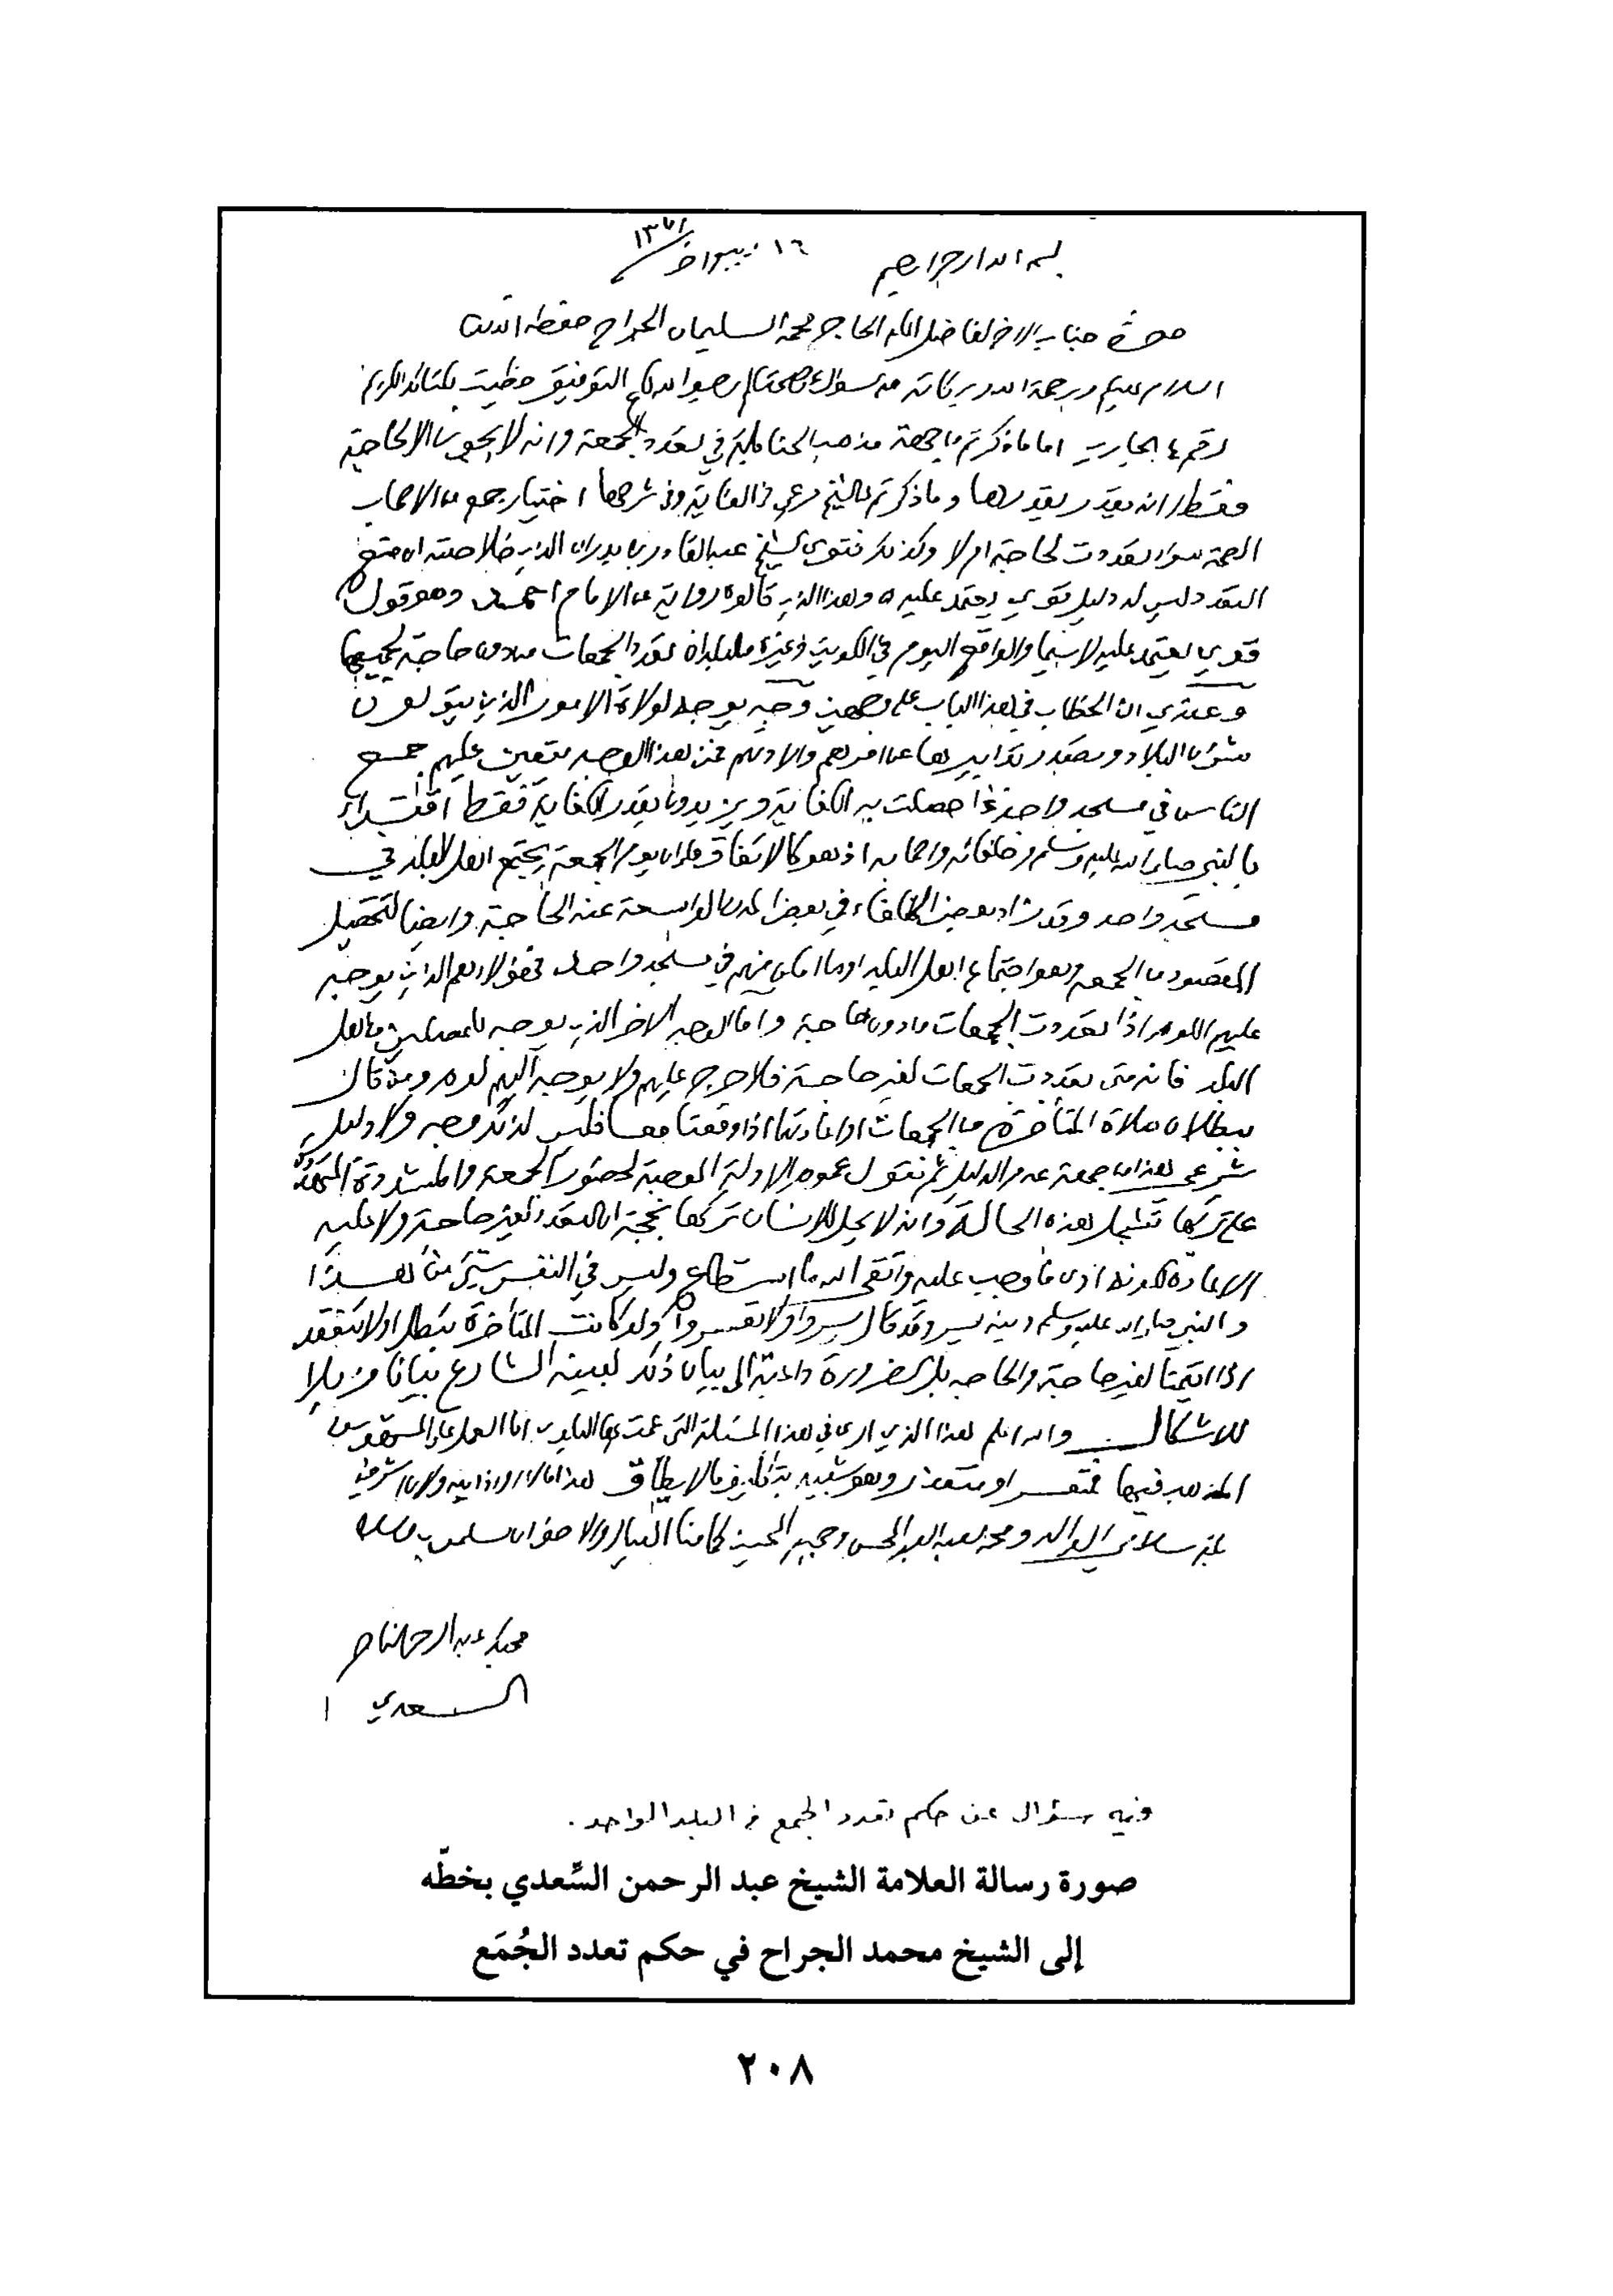 بسم الله الرحمن الرحيم ١٦ ربيع اخر ١٣٧١
حضرة جناب الاخ الفاضل المكرم الحاج محمد السليمان الجراح حفظه الله
السلام عليكم ورحمة الله وبركاته مع السؤال عن صحتكم التوفيق حظيت بكتابكم الكريم
رقم ٤ الجاري اما ما ذكرتم من جهة مذهب الحنابلة في تعدد الجمعة وانه لا يجوز الا لحاجة
فقط وانه يقدر بقدرها وما ذكرتم عن الشيخ مرعي في الغاية وفي شرحها اختيار جمع من الاصحاب
الصحة سواء تعددت لحاجة ام لا وكذلك فتوى الشيخ عبدالقادر بن بدران الذي خلاصته ان منع
التعدد ليس له دليل قوي يعتمد عليه وهذا الذي قالوه رواية عن الامام احمد وهو قول
قوي يعتمد عليه لا سيما والواقع اليوم في الكويت وغيره من البلدان تعدد الجمعات من دون حاجة لجميعها
وعندي ان الخطاب في هذا الباب على وجهين وجه يوجه لولاة الامور الذين يتولون
شؤون البلاد وتصدر تدابيرها عن امرهم والا دلهم فمن هذا الوجه يتعين عليهم جمع
الناس في مسجد واحد اذا حصلت به الكفاية ويزيدون بقدر الكفاية فقط اقتداء
بالنبي صلى الله عليه وسلم وخلفائه واصحابه اذ هو كالاتفاق منهم ان يوم الجمعة يجتمع اهل البلد في
مسجد واحد وقد زاد بعض الخلفاء في بعض المدن الواسعة عند الحاجة وايضا لتحصيل
المقصود من الجمعة وهو اجتماع اهل البلد او ما امكن منهم في مسجد واحد فهؤلاء هم الذين يوجه
عليهم اللوم اذا تعددت الجمعات من دون حاجة واما الوجه الاخر الذي يوجه للمصلين من اهل
البلد فانه متى تعددت الجمعات لغير حاجة فلا حرج عليهم ولا يوجه اليهم لوم ومن قال
ببطلان صلاة المتأخرة من الجمعات او اعادتها اذا وقعتا معا فليس لذلك وجه ولا دليل
شرعي هذا من جهة عدم الدليل ثم نقول عموم الادلة الموجبة لحضور الجمعة والمشددة
على تركها تشمل هذه الحالة وانه لا يحل للانسان تركها بحجة ان التعدد لغير حاجة ولا عليه
الاعادة لكونه ادى ما وجب عليه واتقى الله ما استطاع وليس في النفس شيء من هذا
والنبي صلى الله عليه وسلم دينه يسر وقد قال يسروا ولا تعسروا ولو كانت المتأخرة تبطل او لا تنعقد
اذا اقيمتا لغير حاجة والحاجه بل الضرورة داعية الى بيان ذلك لبينه الشارع بيانا مزيلا
للاشكال والله اعلم هذا الذي ارى في هذا المسئلة التي عمت بها البلوى اما العمل على المشهور من
المذهب فيها فمتعسر او متعذر وهو شبيه بتكليف ما لا يطاق هذا ما لزم
بلغ سلامي الوالد ومحمد العبد المحسن وجميع المحبين كما منا العيال والاخوان يسلمون
محبك عبد الرحمن الناصر
السعدي
وفيه سؤال عن حكم تعدد الجمع في البلد الواحد.
صورة رسالة العلامة الشيخ عبد الرحمن السَّعدي بخطّه
إلى الشيخ محمد الجراح في حكم تعدد الجُمَع
٢٠٨